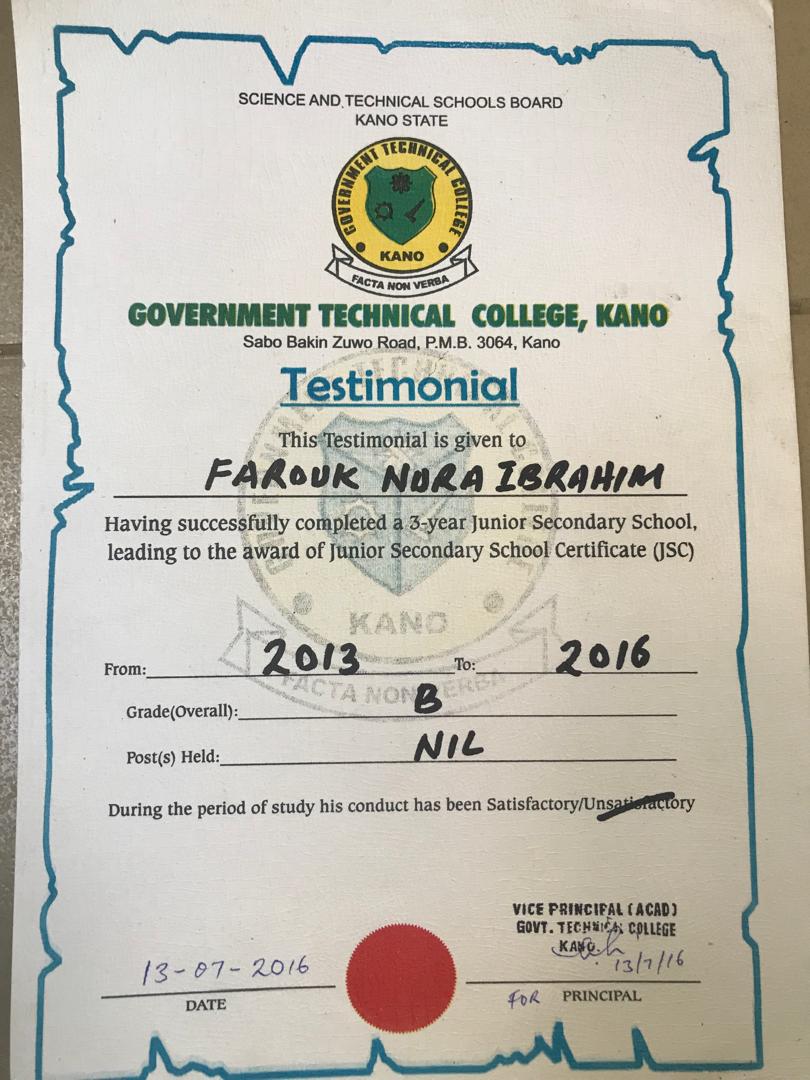 SCIENCE AND TECHNICAL SCHOOLS BOARD
KANO STATE
GOVERNMENT TECHNICAL COLLEGE
KANO
FACTA NON VERBA
GOVERNMENT TECHNICAL COLLEGE, KANO
Sabo Bakin Zuwo Road, P.M.B. 3064, Kano
Testimonial
This Testimonial is given to
FAROUK NURA IBRAHIM
Having successfully completed a 3-year Junior Secondary School,
leading to the award of Junior Secondary School Certificate (JSC)
KANO
From: 2013 To: 2016
FACTA NON VERBA
Grade(Overall): B
Post(s) Held: NIL
During the period of study his conduct has been Satisfactory/Unsatisfactory
VICE PRINCIPAL (ACAD)
GOVT. TECHNICAL COLLEGE
KANO.
13/7/16
13-07-2016
DATE
FOR PRINCIPAL